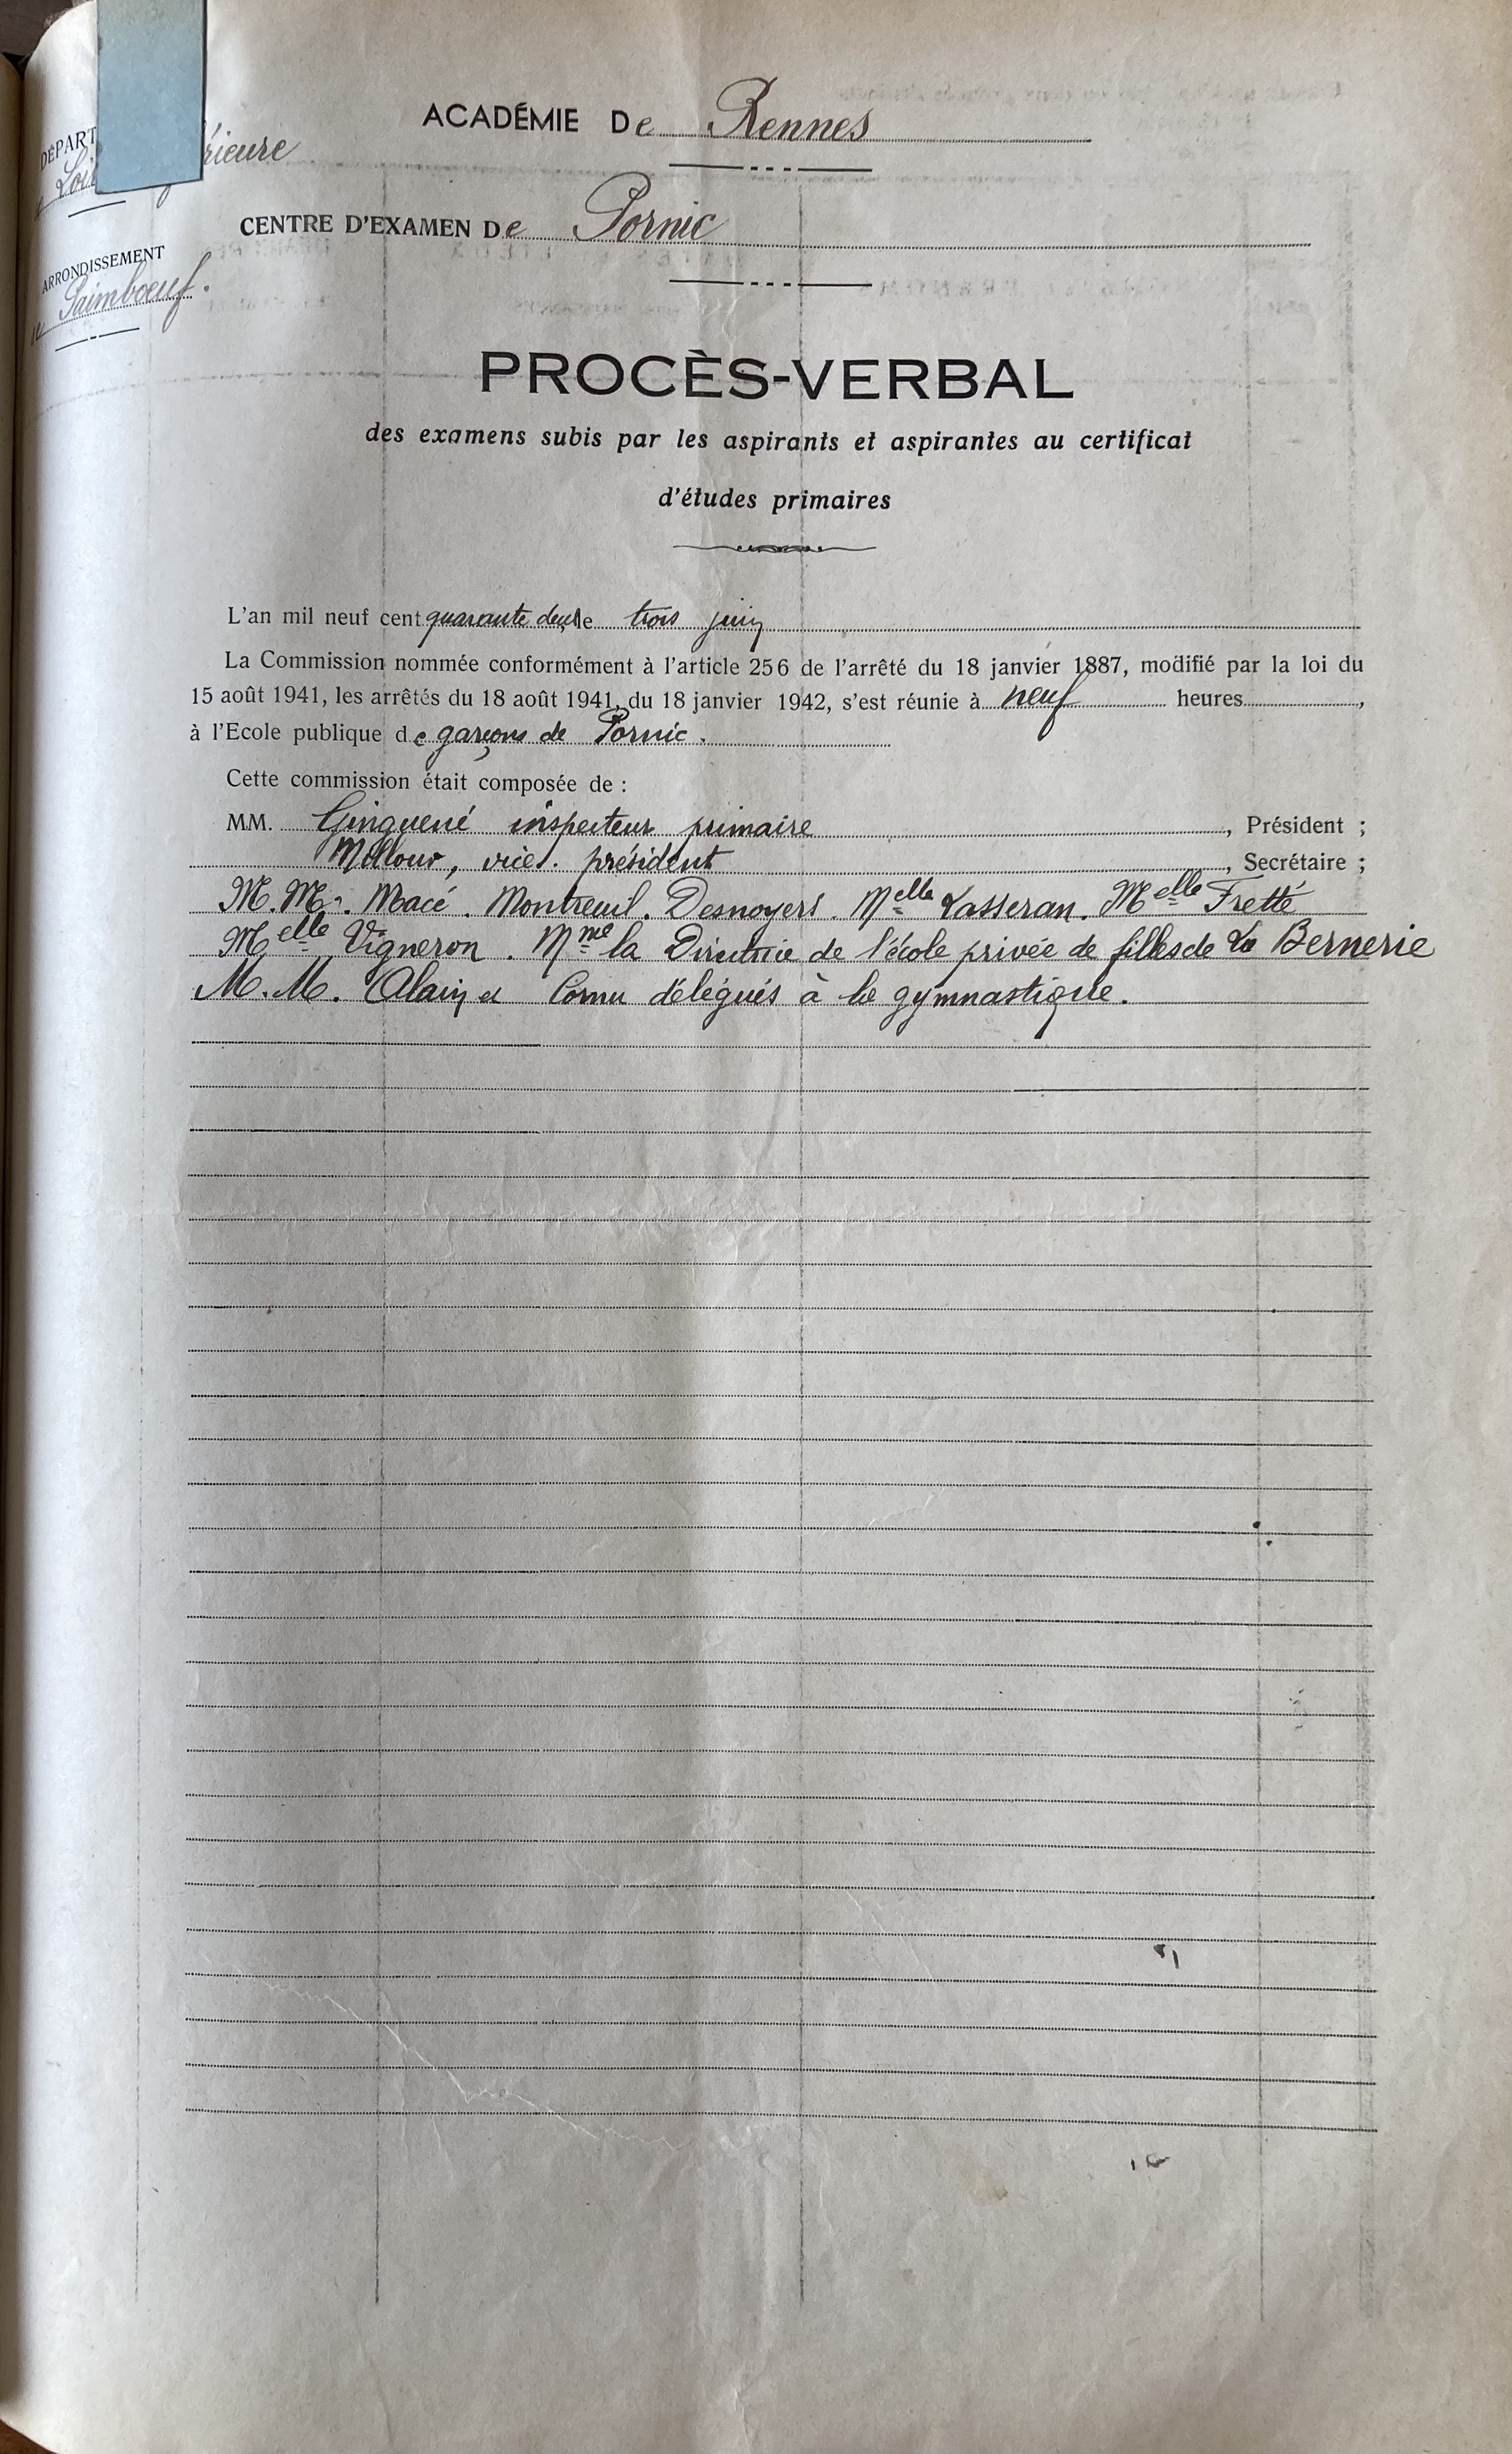 ACADÉMIE De Rennes
DÉPART
Loi rieure
CENTRE D'EXAMEN De Pornic
ARRONDISSEMENT
Paimboeuf.
PROCÈS-VERBAL
des examens subis par les aspirants et aspirantes au certificat
d'études primaires
L'an mil neuf cent quarante deux le trois juin
La Commission nommée conformément à l'article 256 de l'arrêté du 18 janvier 1887, modifié par la loi du
15 août 1941, les arrêtés du 18 août 1941, du 18 janvier 1942, s'est réunie à neuf heures ,
à l'Ecole publique de garçons de Pornic.
Cette commission était composée de :
MM. Ginguené inspecteur primaire , Président ;
Millour, vice-président , Secrétaire ;
M.M. Macé. Montreuil. Desnoyers. Melle Lasseran. Melle Fretté
Melle Vigneron. Mme la Directrice de l'école privée de filles de La Bernerie
M.M. Alain et Cornu délégués à la gymnastique.